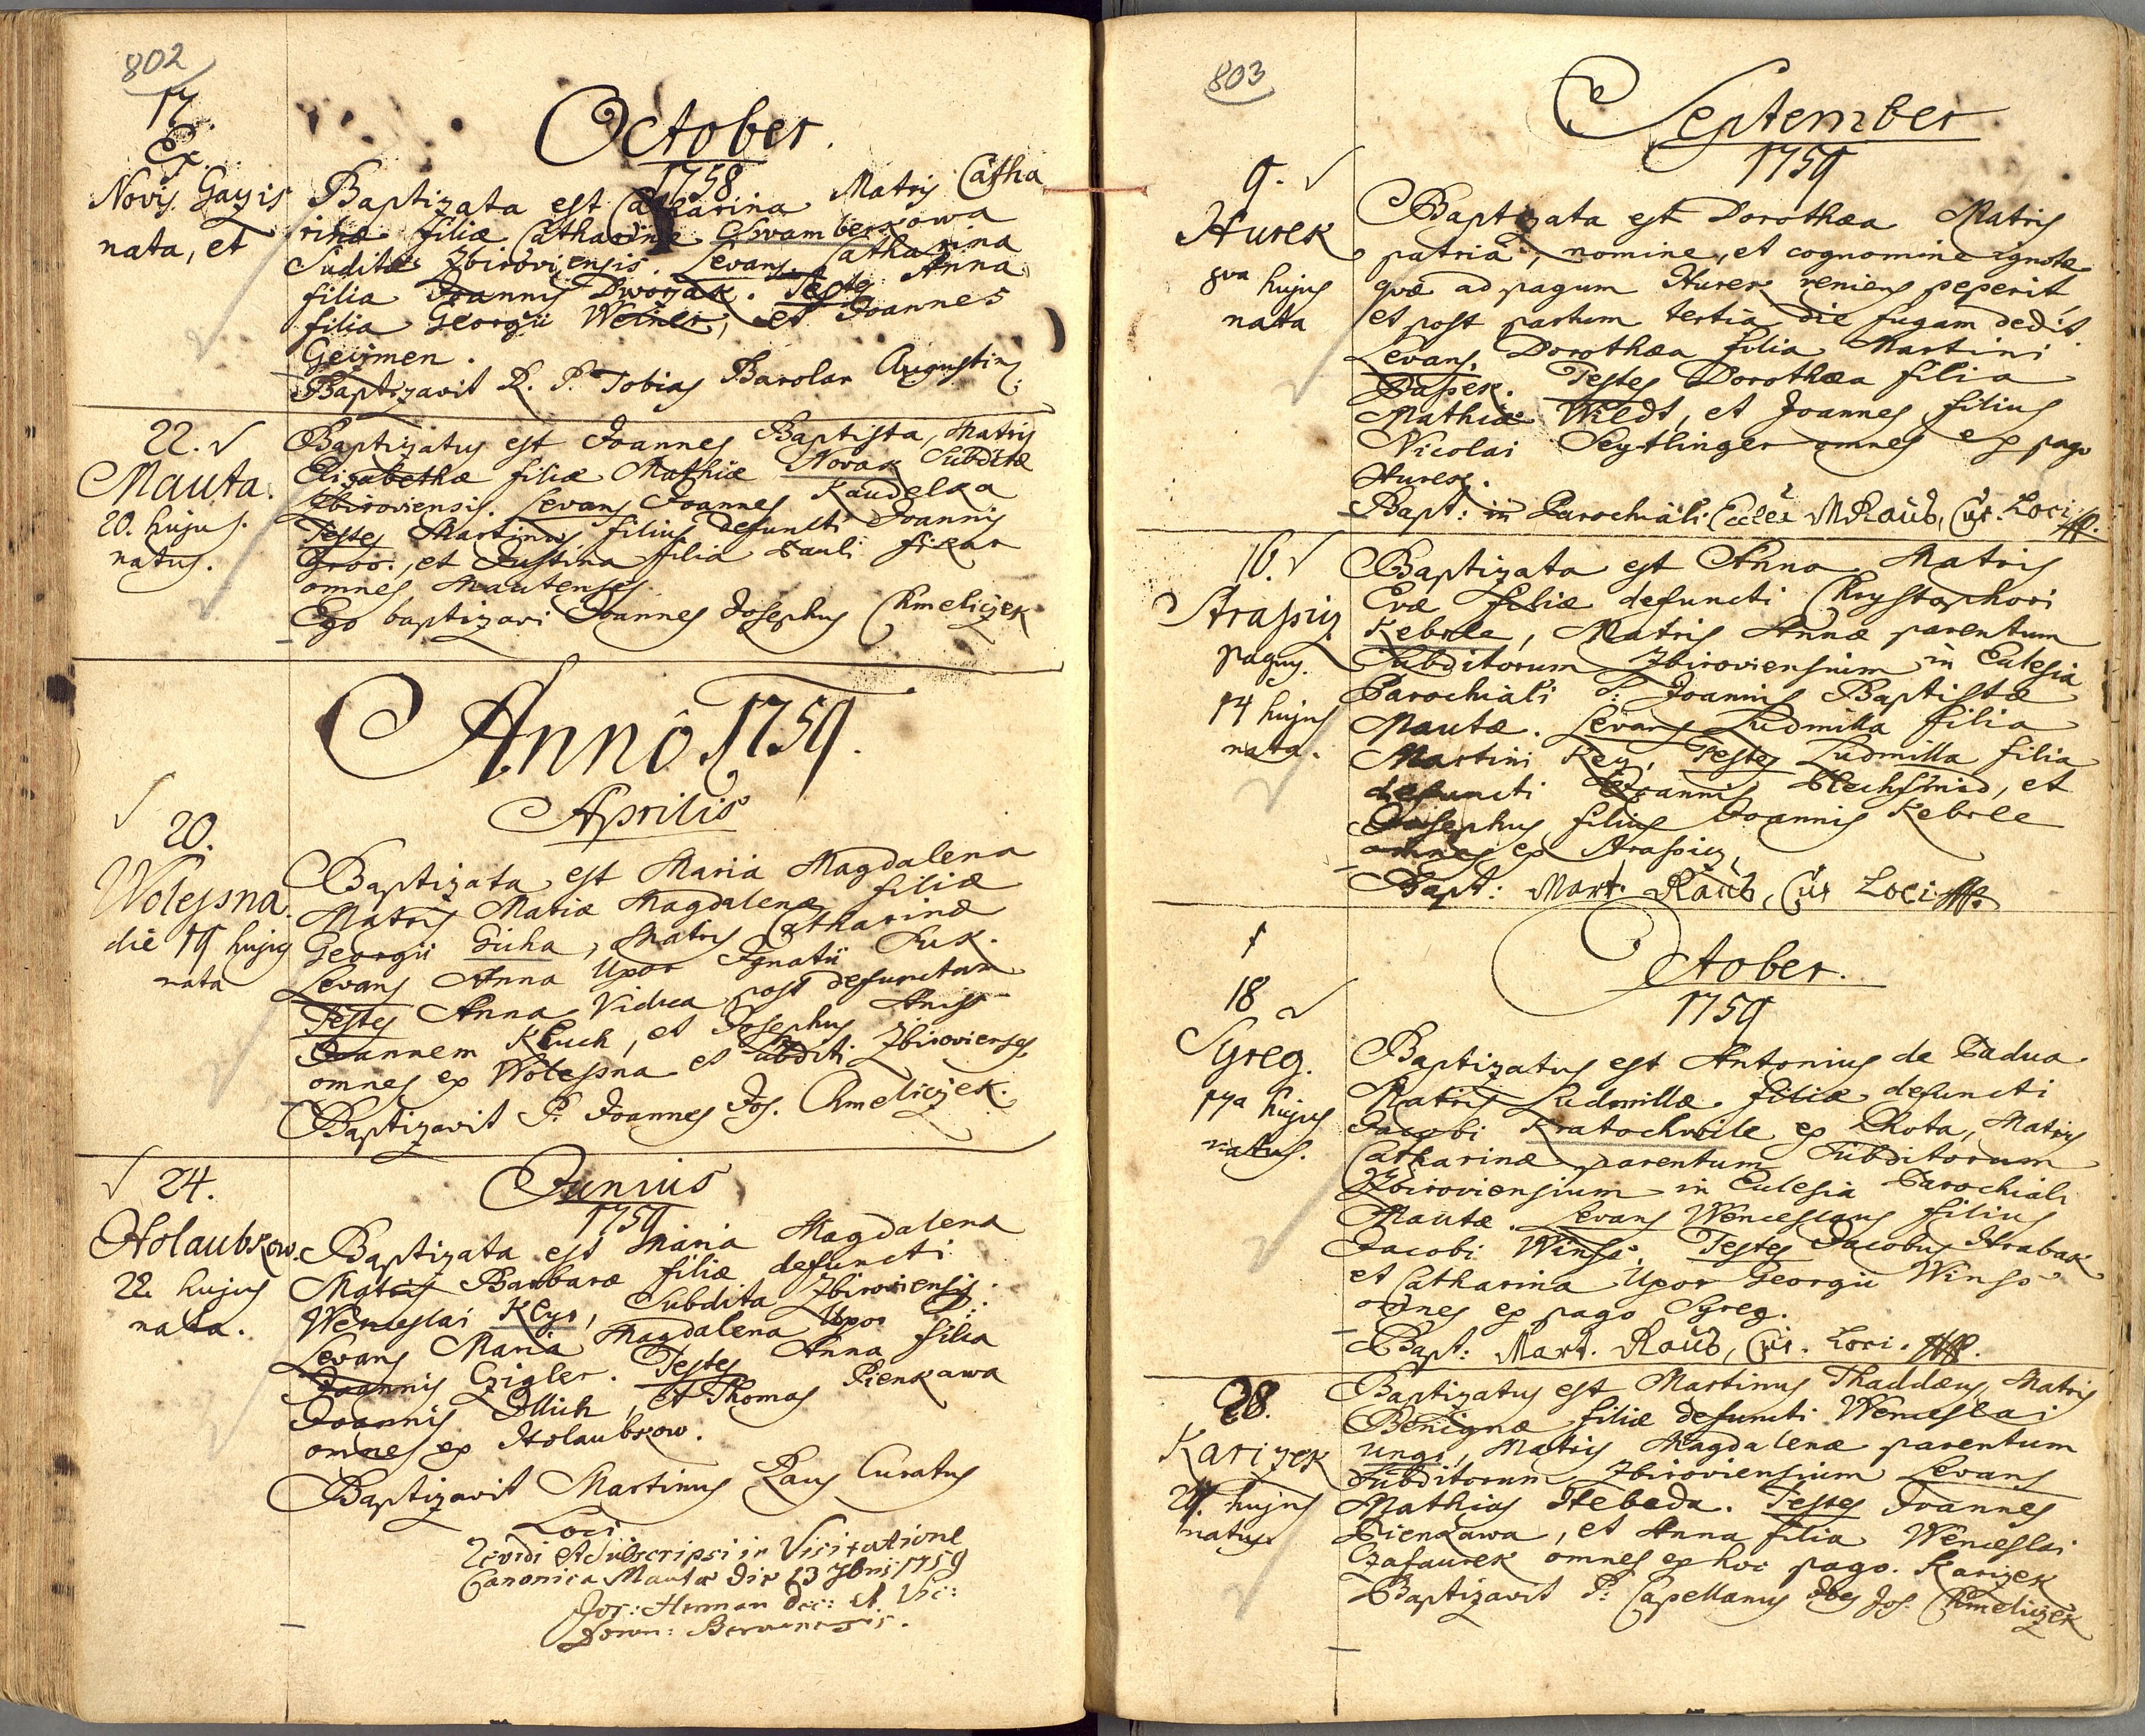 802
17.
Ex
Novis Gazis
nata, et
October.
1758
Baptizata est Catharina Matris Catha
rinæ filiæ Catharinæ Swamberkowa
Suditæ Zbiroviensis. Levans Catharina
filia Joannis Dworzak. Testes Anna
filia Georgii Weiner, et Joannes
Geismen.
Baptizavit R. P. Tobias Barolar Augustin:
22. √
Mauta.
20. hujus.
natus.
Baptizatus est Joannes Baptista, Matris
Elisabethæ filiæ Mathiæ Novak Subditæ
Zbiroviensis. Levans Joannes Kaudelka
Testes Martinus filius defuncti Joannis
et Justina filia Pauli Fikar
omnes Mautenses.
Ego baptizavi Joannes Josephus Chmeliczek
Annô 1759.
Aprilis
20.
Wolessna.
die 19 hujus
nata
Baptizata est Maria Magdalena
Matris Mariæ Magdalenæ filiæ
Georgii Gicha, Matris Catharinæ
Levans Anna Uxor Ignatii Fuk.
Testes Anna Vidua post defunctum
Joannem Kluch, et Josephus Aniss
omnes ex Wolessna et subditi Zbirovienses
Baptizavit P. Joannes Jos. Chmeliczek.
√ 24.
Holaubkow.
22. hujus
nata.
Junius
1759
Baptizata est Maria Magdalena
Matris Barbaræ filiæ defuncti
Wenceslai Klyr, Subdita Zbiroviensis.
Levans Maria Magdalena Uxor
Joannis Czigler. Testes Anna filia
Joannis Illich, et Thomas Pienkawa
omnes ex Holaubkow.
Baptizavit Martinus Raus Curatus
Loci
Revidi et Subscripsi in Visitatione
Canonica Mautæ die 13 7bris 1759
Jos: Herman Dec: et Vic:
803
September
1759
9. √
Hurek
8va hujus
nata
Baptizata est Dorothæa Matris
patriâ, nomine, et cognomine ignotæ
quæ ad pagum Hurek veniens peperit
et post partum tertia die fugam dedit.
Levans Dorothæa filia Martini
Dassek. Testes Dorothæa filia
Mathiæ Wildt, et Joannes filius
Nicolai Seytlinger omnes ex pago
Hurek.
Bapt: in Parochiali Eccles M Raüs, Cur. Loci
16. √
Strassiz
pagus.
14 hujus
nata.
Baptizata est Anna Matris
Evæ filiæ defuncti Chrystophori
Kebrle, Matris Annæ parentum
Subditorum Zbiroviensium in Eulesia
Parochiali S: Joannis Baptistæ
Mautæ. Levans Ludmilla filia
Martini Key, Testes Ludmilla filia
defuncti Joannis Blechsmid, et
Josephus filius Joannis Kebrle
omnes ex Strassicz,
Bapt: Mart. Raüs, Cür Loci
October.
1759
18 √
Syreg.
17a hujus
natus.
Baptizatus est Antonius de Padua
Matris Ludmillæ filiæ defuncti
Jacobi Kratochwile ex Lhota, Matris
Catharinæ parentum Subditorum
Zbiroviensium in Eulesia Parochiali
Mautæ. Levans Wenceslaus filius
Jacobi Winss. Testes Jacobus Hrabak
et Catharina Uxor Georgii Winss
omnes ex pago Syreg.
Bapt: Mart. Raüs, Cür. Loci.
28.
Karizek
hujus
natus
Baptizatus est Martinus Thaddæus, Matris
Benignæ filiæ defuncti Wenceslai
Ungr, Matris Magdalenæ parentum
Subditorum Zbiroviensium Levans
Mathias Hebeda. Testes Joannes
Pienkawa, et Anna filia Wenceslai
Czasaurek omnes ex hoc pago. Karizek
Baptizavit P: Capellanus Jôes Jos. Chmeliczek